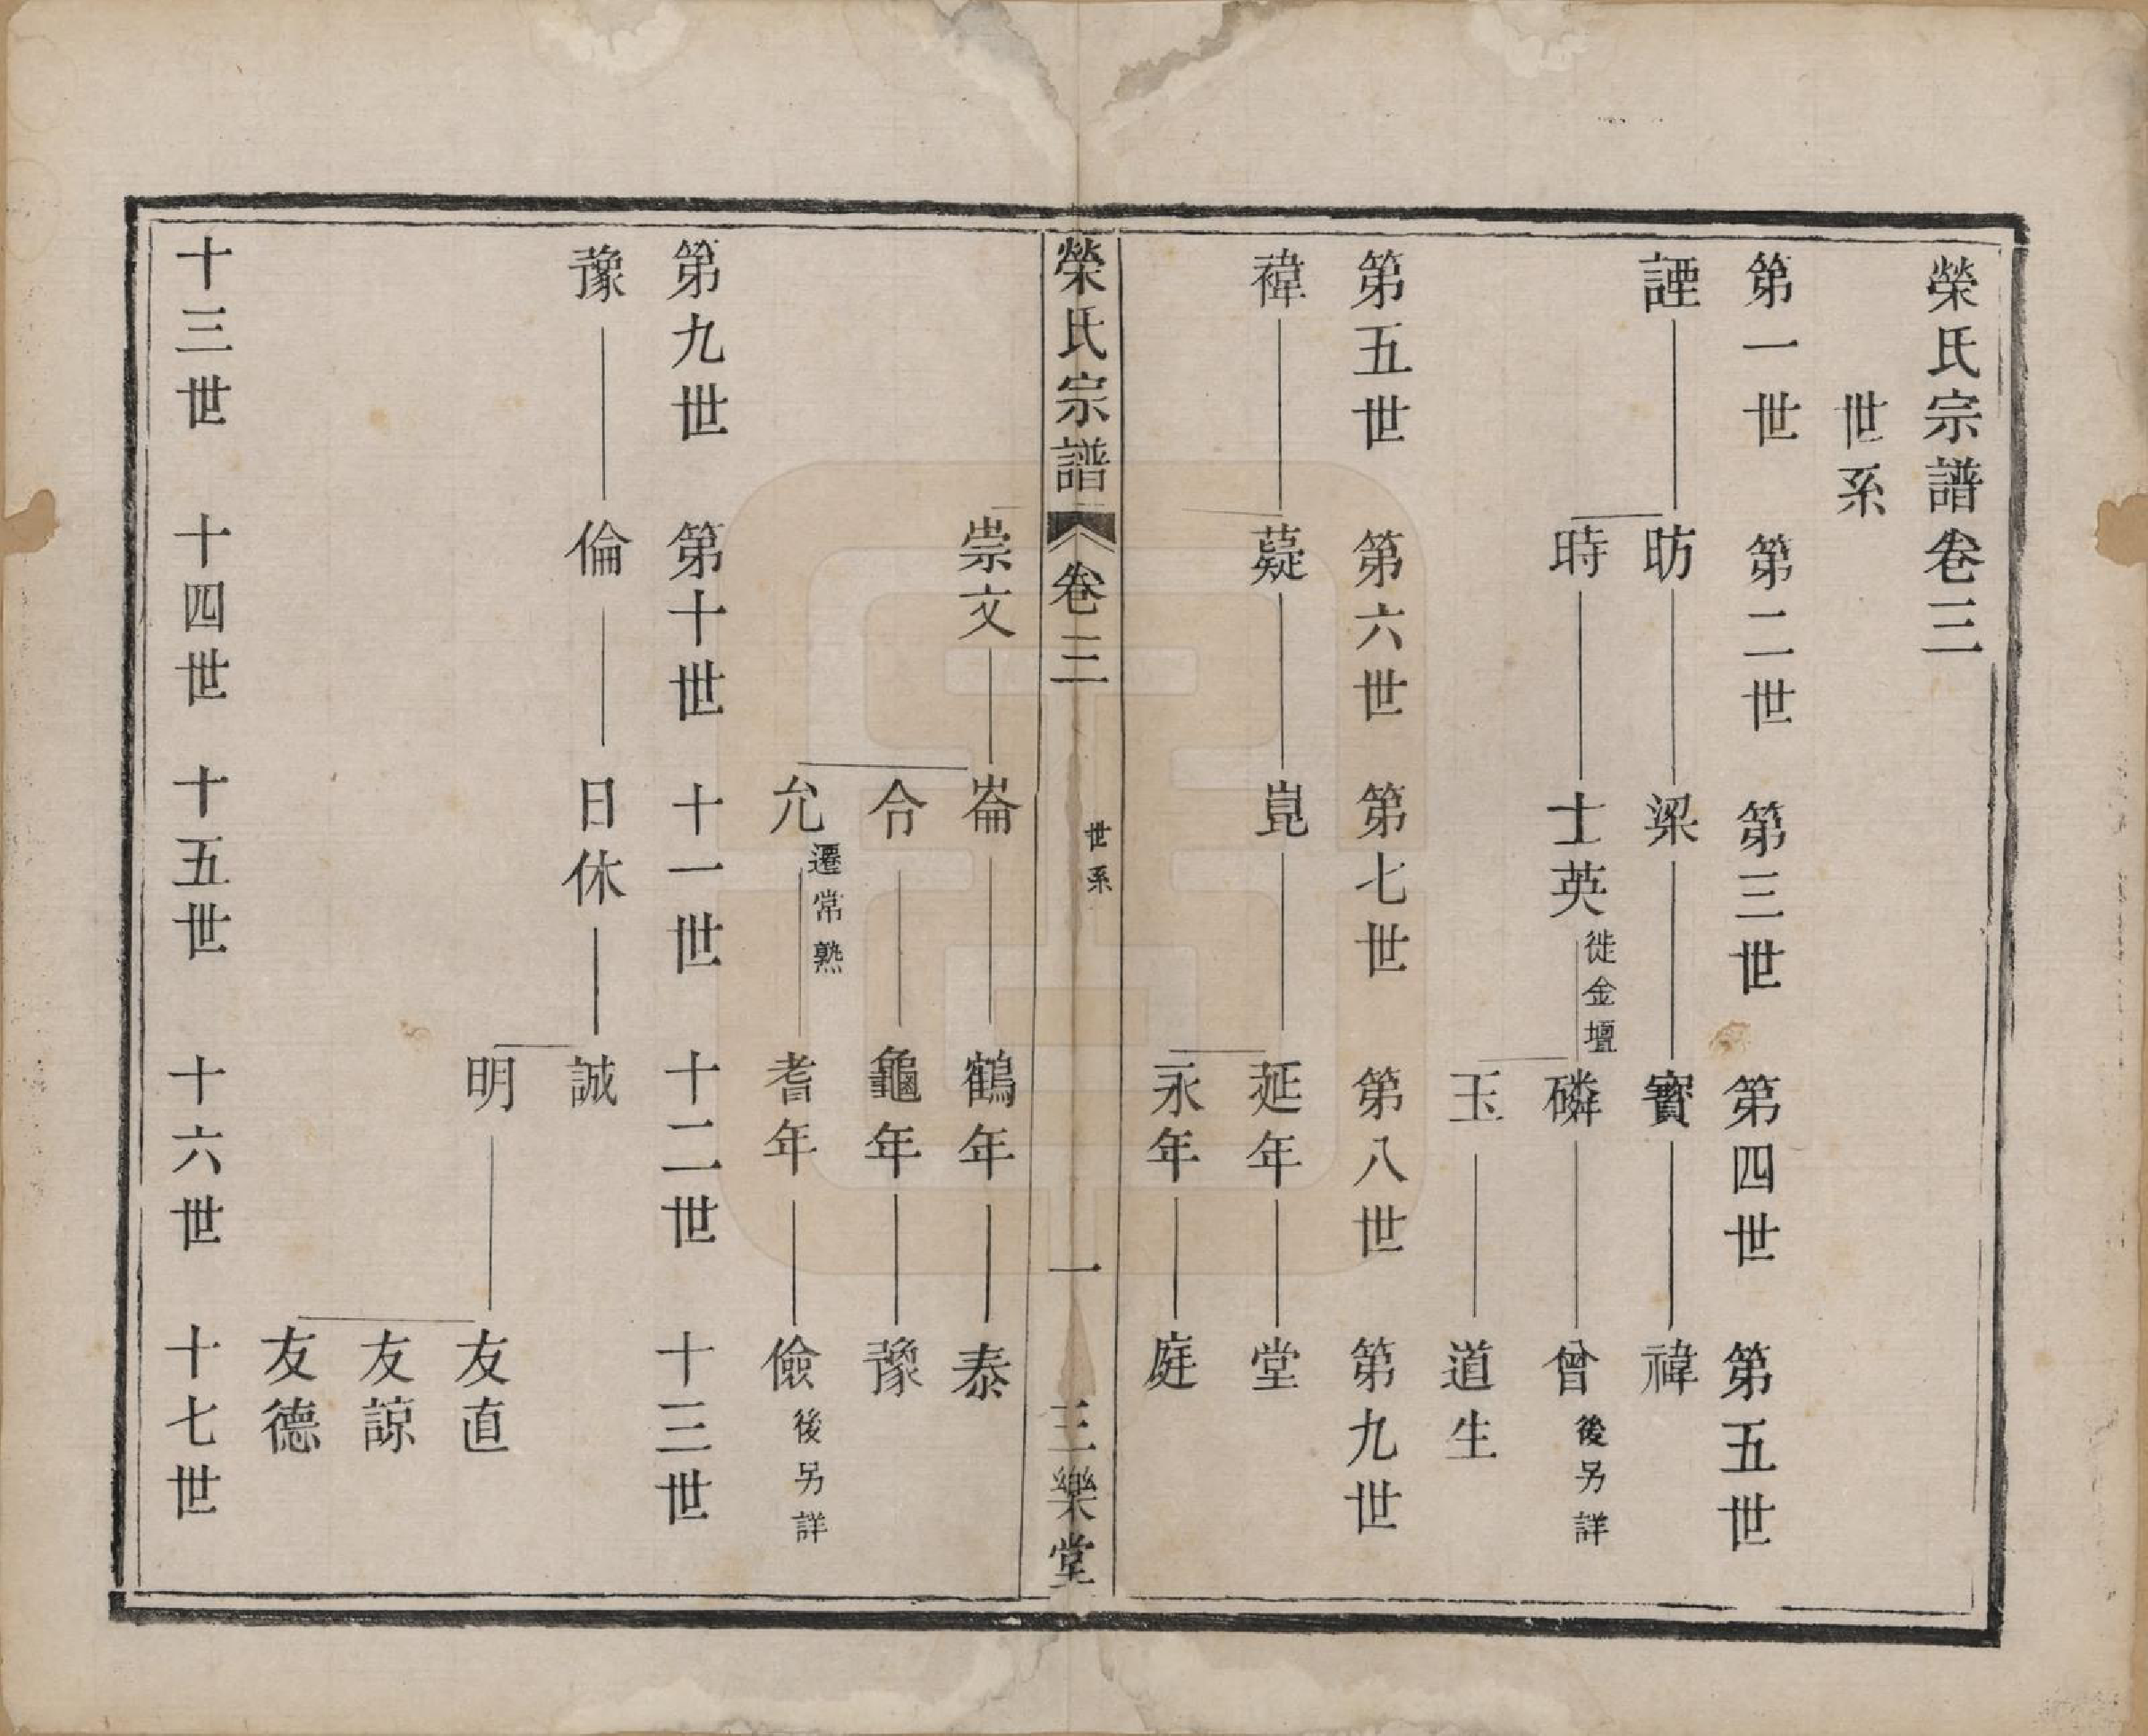 榮氏宗譜卷三
世系
第一世 第二世 第三世 第四世 第五世
諲 昉 梁 寶 禕
時 士英 徙金壇 磷 曾 後另詳
玉 道生
第五世 第六世 第七世 第八世 第九世
禕 薿 崑 延年 堂
永年 庭
榮氏宗譜 卷三 世系 一 三樂堂
崇文 崙 鶴年 泰
令 龜年 豫
允 遷常熟 耆年 儉 後另詳
第九世 第十世 十一世 十二世 十三世
豫 倫 日休 誠
明 友直
友諒
友德
十三世 十四世 十五世 十六世 十七世